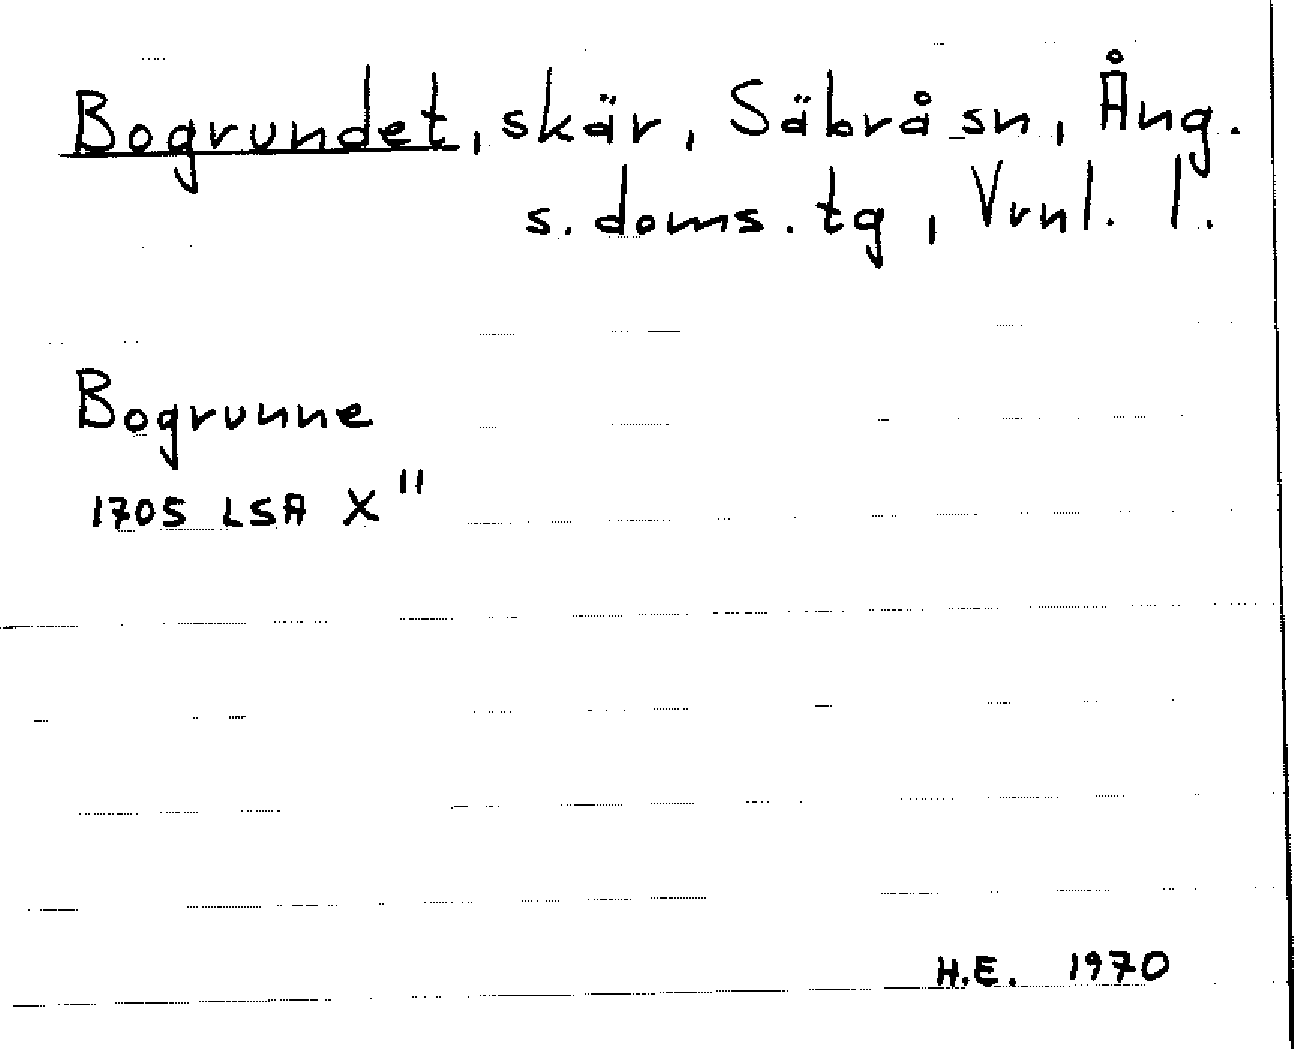 Bogrundet, skär, Säbrå sn, Ång.
s. doms. tg, Vrnl. l.
Bogrunne
1705 LSA X"
H.E. 1970